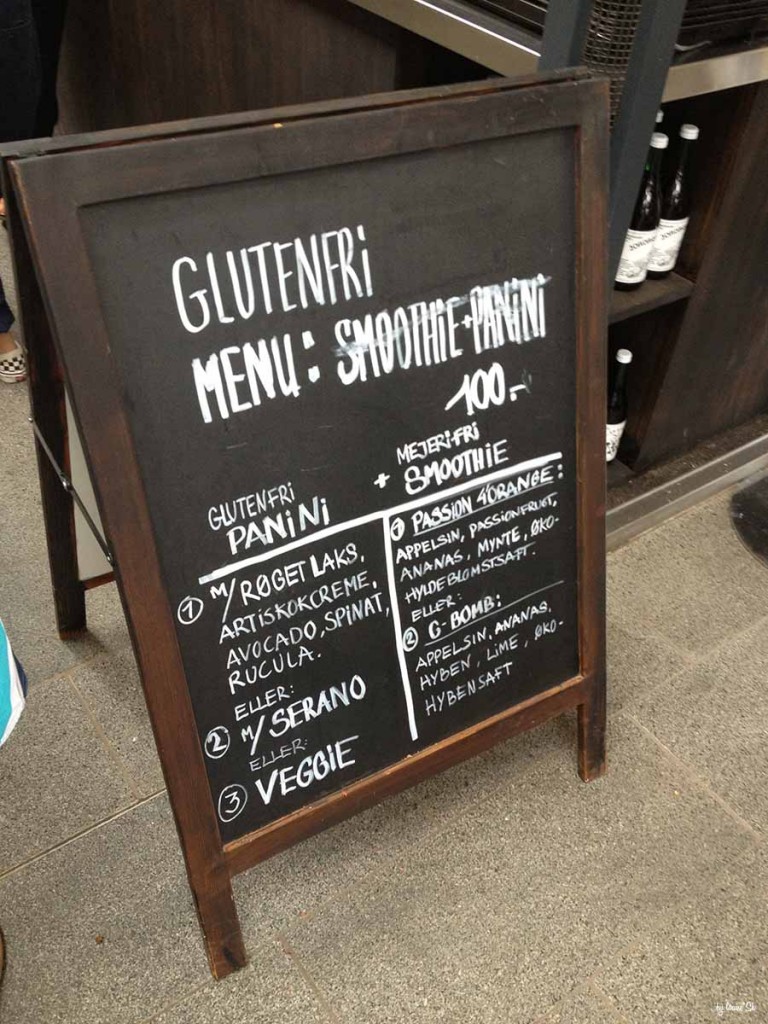 GLUTENFRI
MENU: SMOOTHIE+PANINI
100.-
GLUTENFRI
PANINI
+ MEJERI-FRI
SMOOTHIE
① M/RØGET LAKS,
ARTISKOKCREME,
AVOCADO, SPINAT,
RUCULA.
ELLER:
② M/SERANO
ELLER:
③ VEGGIE
① PASSION 4'ORANGE:
APPELSIN, PASSIONFRUGT,
ANANAS, MYNTE, ØKO-
HYLDEBLOMSTSAFT.
ELLER:
② G-BOMB:
APPELSIN, ANANAS,
HYBEN, LIME, ØKO-
HYBENSAFT